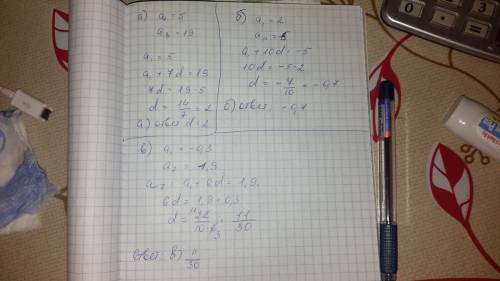 а) a₁ = 5
a₈ = 19
a₁ = 5
a₁ + 7d = 19
7d = 19-5
d = 14/7 = 2
а) ответ d = 2
б) a₁ = 2
a₁₁ = 5
a₁ + 10d = -5
10d = -5-2
d = -7/10 = -0,7
б) ответ: -0,7
в) a₁ = -0,3
a₇ = 1,9
a₇ = a₁ + 6d = 1,9
6d = 1,9 + 0,3
d = 22/10·6 = 11/30
Ответ: в) 11/30